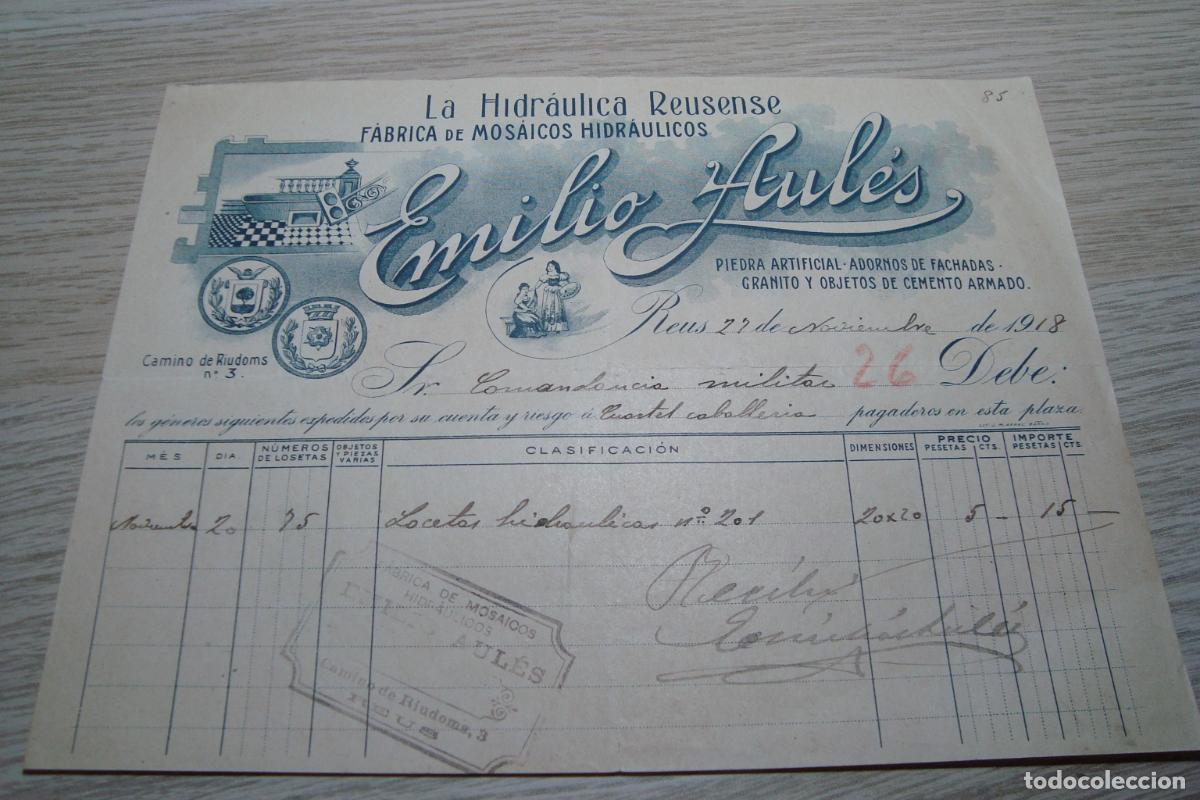 85
La Hidráulica Reusense
FÁBRICA DE MOSÁICOS HIDRÁULICOS
Emilio Aulés
PIEDRA ARTIFICIAL · ADORNOS DE FACHADAS ·
GRANITO Y OBJETOS DE CEMENTO ARMADO.
Camino de Riudoms
nº 3.
Reus 27 de Noviembre de 1918
Sr. Comandancia militar 26 Debe:
los géneros siguientes expedidos por su cuenta y riesgo á Cuartel caballeria pagaderos en esta plaza.
MÉS DIA. NÚMEROS DE LOSETAS OBJETOS Y PIEZAS VARIAS CLASIFICACIÓN DIMENSIONES PRECIO PESETAS CTS. IMPORTE PESETAS CTS.
Noviembre 20 75 Locetas hidraulicas nº 201 20x20 5 — 15 —
Recibí
Emilio Aulés
FÁBRICA DE MOSAICOS
HIDRÁULICOS
EMILIO AULÉS
Camino de Riudoms, 3
REUS
todocoleccion